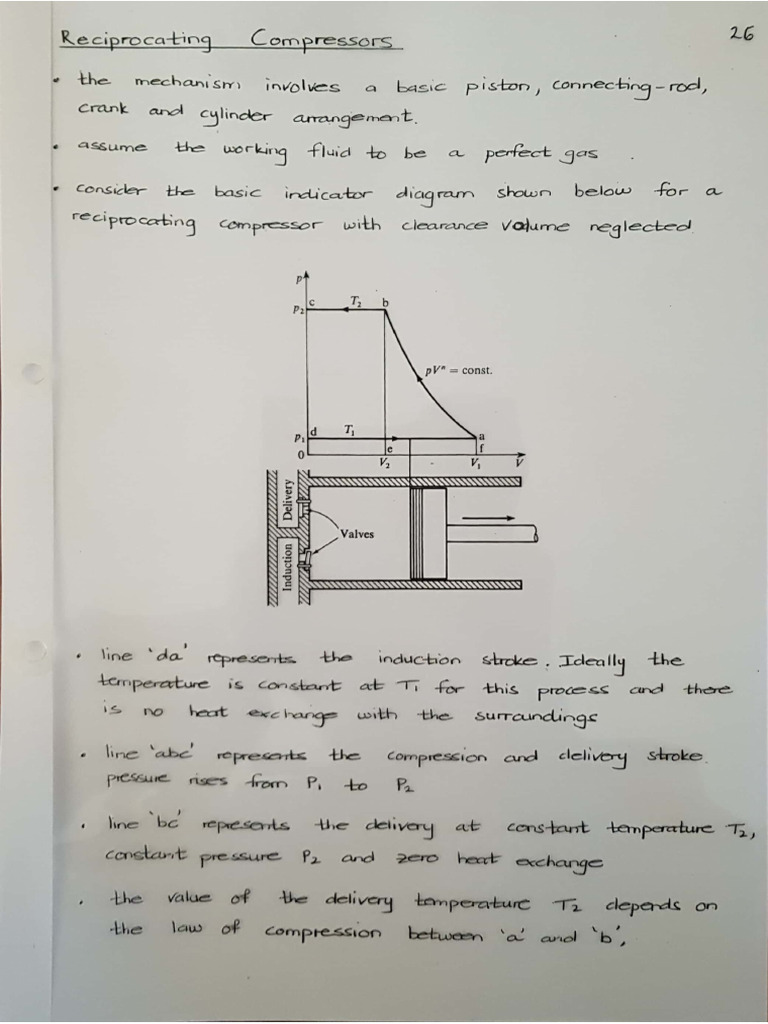 Reciprocating Compressors
26
• the mechanism involves a basic piston, connecting-rod,
crank and cylinder arrangement.
• assume the working fluid to be a perfect gas .
• consider the basic indicator diagram shown below for a
reciprocating compressor with clearance volume neglected
p
p₂ c T₂ b
pVⁿ = const.
p₁ d T₁ a
0 e f
V₂ V₁ V
Delivery
Valves
Induction
• line 'da' represents the induction stroke. Ideally the
temperature is constant at T₁ for this process and there
is no heat exchange with the surroundings
• line 'abc' represents the compression and delivery stroke.
pressure rises from P₁ to P₂
• line 'bc' represents the delivery at constant temperature T₂,
constant pressure P₂ and zero heat exchange
• the value of the delivery temperature T₂ depends on
the law of compression between 'a' and 'b',